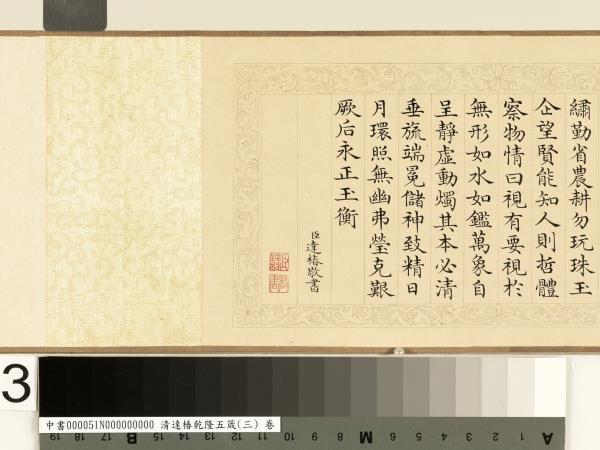 繡勤省農耕勿玩珠玉
企望賢能知人則哲體
察物情曰視有要視於
無形如水如鑑萬象自
呈靜虛動燭其本必清
垂旒端冕儲神致精日
月環照無幽弗瑩克艱
厥后永正玉衡
臣達椿敬書
3
中書000051N000000000 清達椿乾隆五箴(三) 卷
19 18 17 16 15 B 14 13 12 11 10 9 8 M 7 6 5 4 3 2 1 A